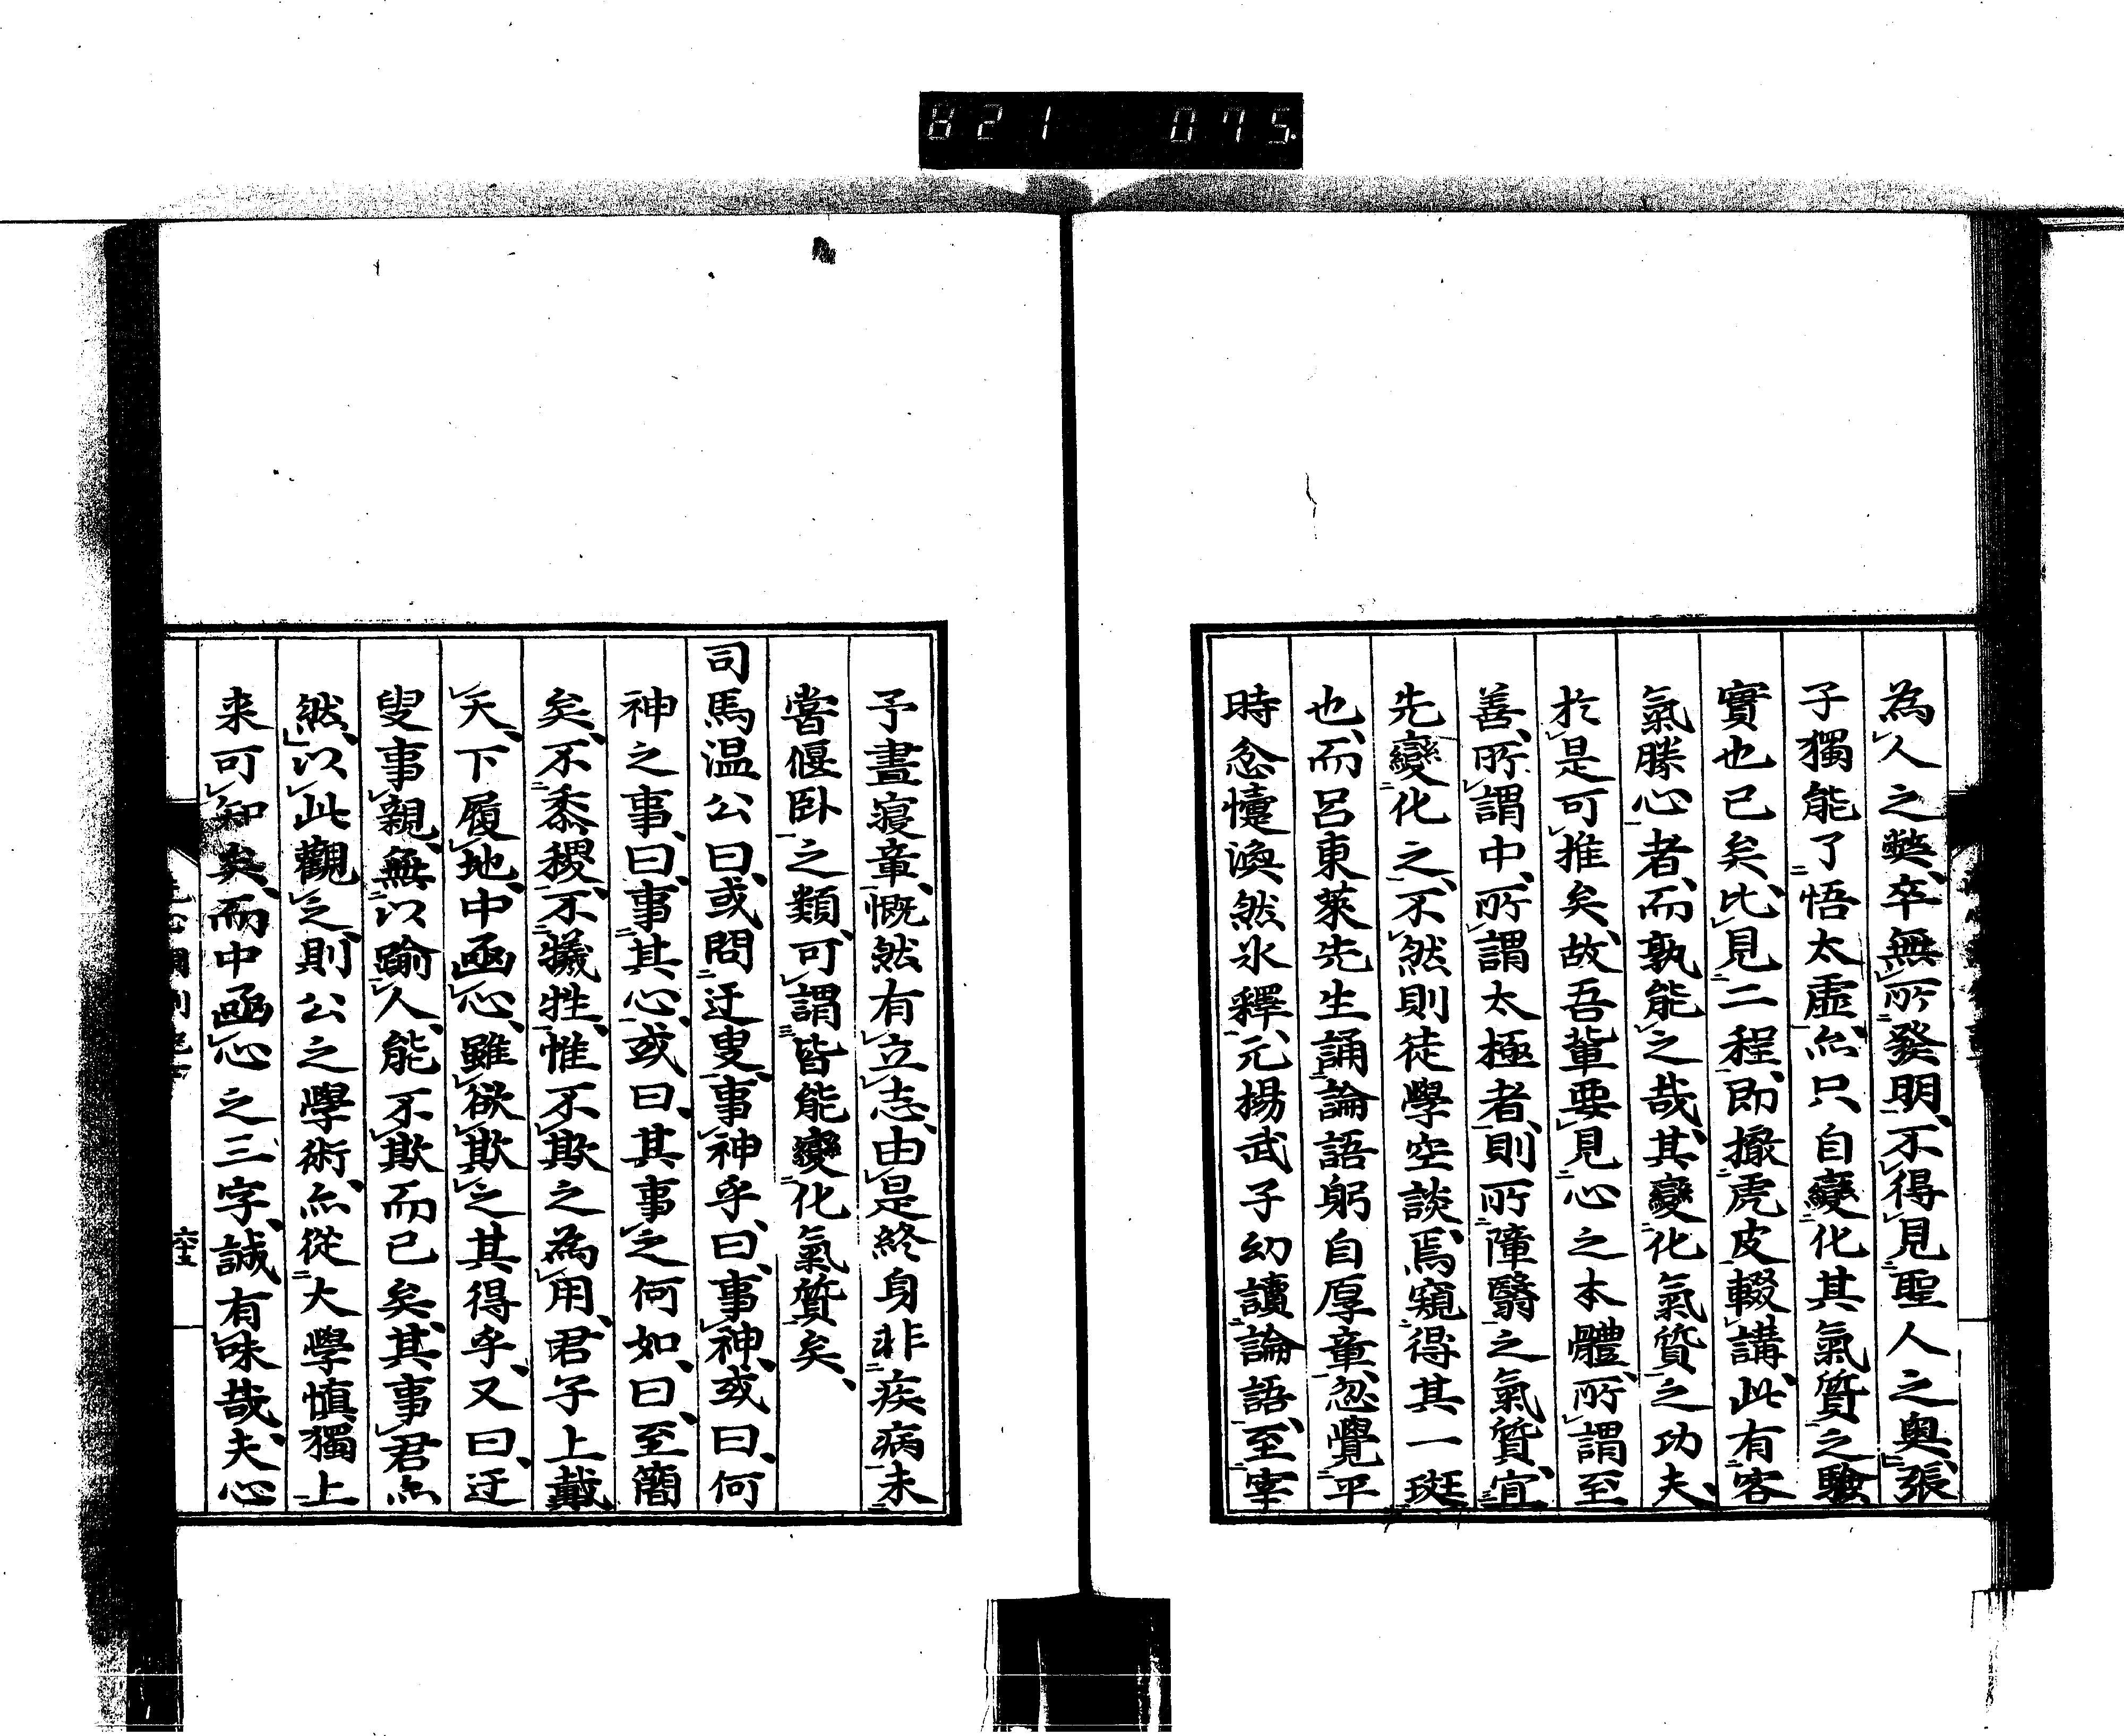 821 075.
為人之弊、卒無所發明、不得見聖人之奥、張
子獨能了悟太虛、亦只自變化其氣質之驗
實也已矣、比見二程、即撤虎皮輟講、此有客
氣勝心者、而孰能之哉、其變化氣質之功夫、
於是可推矣、故吾輩要見心之本體、所謂至
善、所謂中、所謂太極者、則所障翳之氣質、宜
先變化之、不然則徒學空談、焉窺得其一斑
也、而呂東萊先生誦論語躬自厚章、忽覺平
時忿懥渙然氷釋、元揚武子幼讀論語、至宰
予晝寢章、慨然有立志、由是終身非疾病未
嘗偃卧之類、可謂皆能變化氣質矣、
司馬温公曰、或問迂叟、事神乎、曰、事神、或曰、何
神之事、曰、事其心、或曰、其事之何如、曰、至簡
矣、不黍稷、不犧牲、惟不欺之為用、君子上戴
天、下履地、中函心、雖欲欺之其得乎、又曰、迂
叟事親、無以踰人、能不欺而已矣、其事君亦
然、以此觀之、則公之學術、亦從大學慎獨上
来可知矣、而中函心之三字、誠有味哉夫、心
六十五